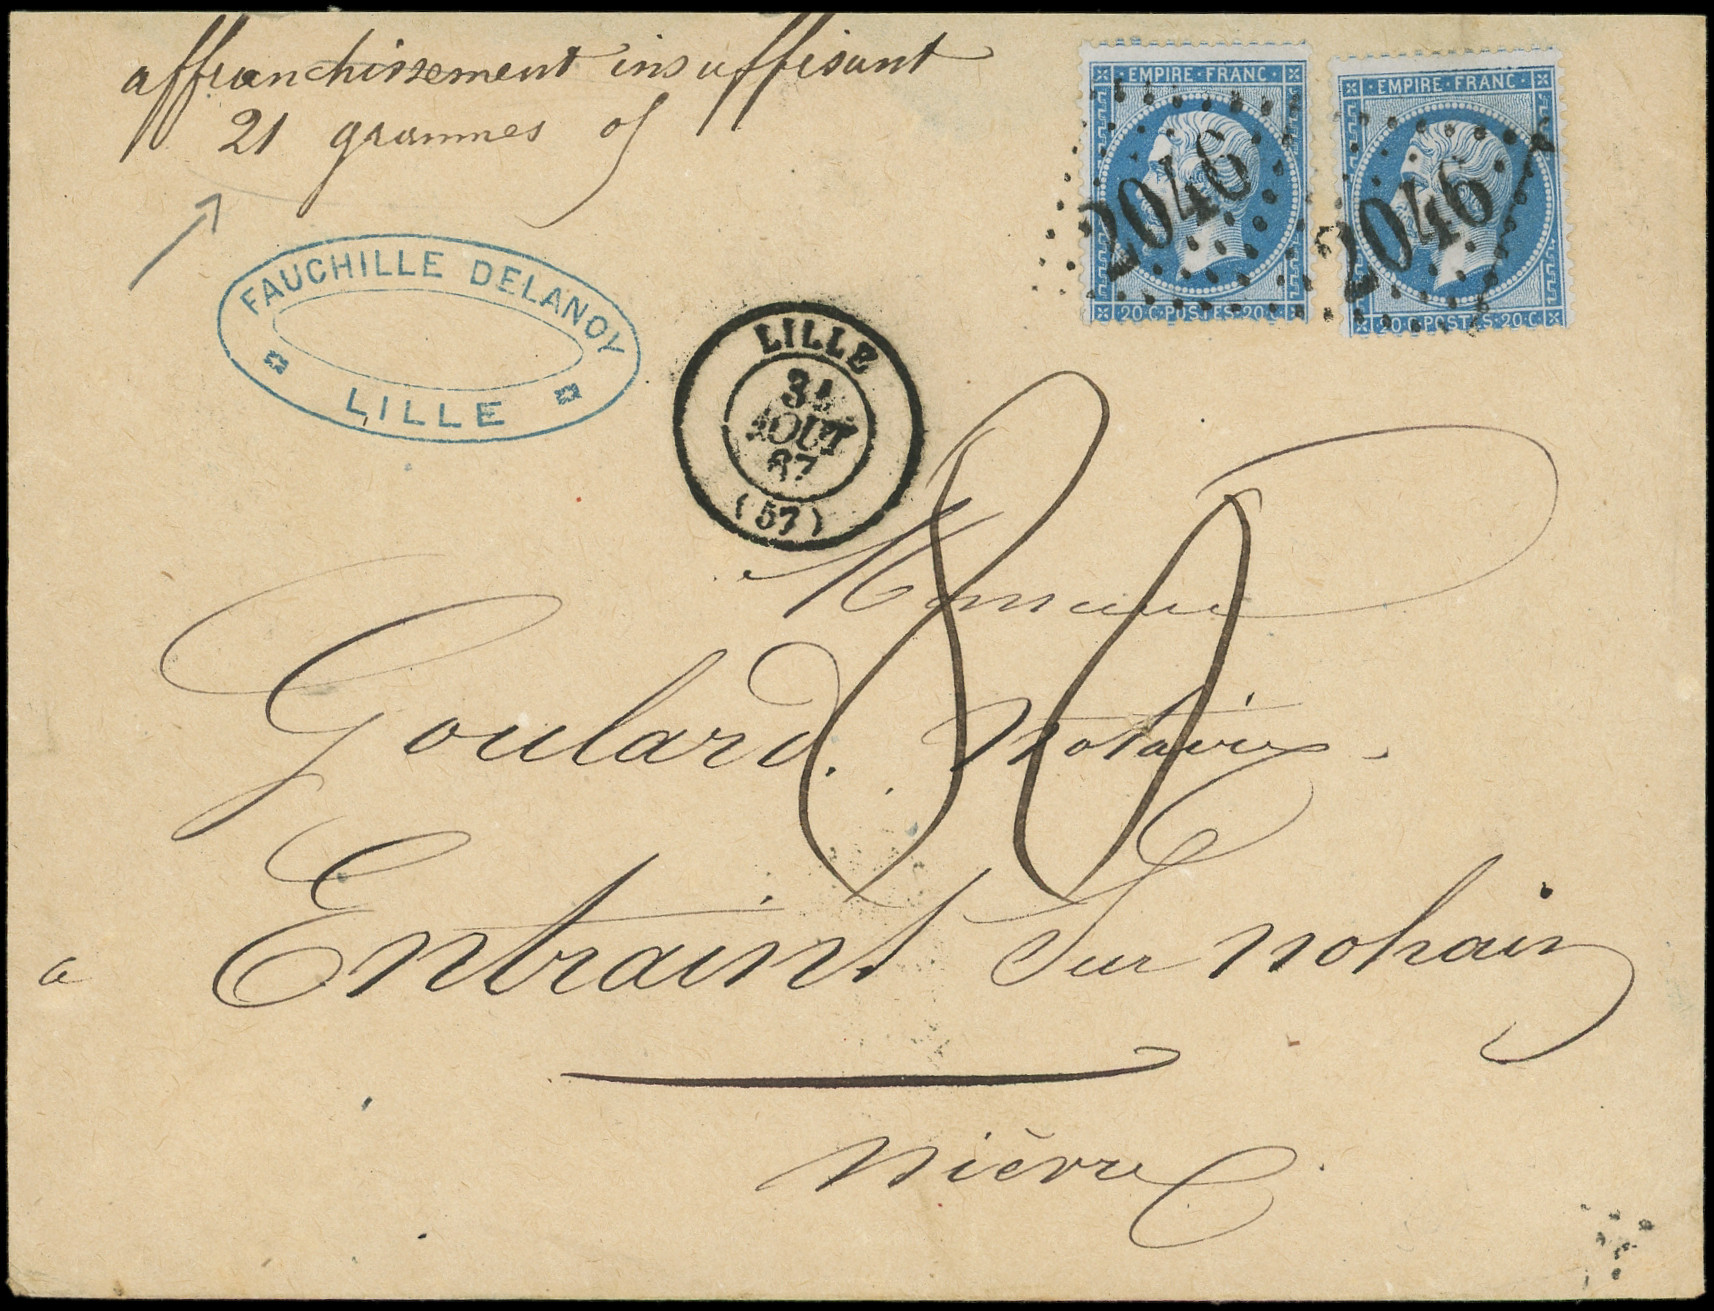 affranchissement insuffisant
21 grammes
EMPIRE · FRANC
20 C · POSTES · 20 C
2046
EMPIRE · FRANC
20 C · POSTES · 20 C
2046
FAUCHILLE DELANOY
LILLE
LILLE
31
AOUT
67
(57)
80
Monsieur
Goulard. Notaire
a Entrains sur nohain
nièvre